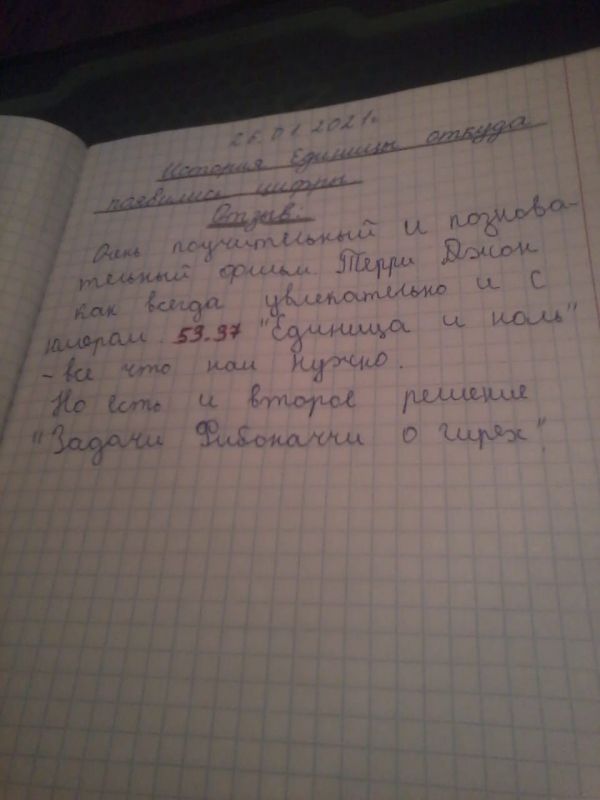 26.01.2021г.
История Единицы откуда
появились цифры
Отзыв:
Очень поучительный и познова-
тельный фильм. Терри Джон
как всегда увлекательно и с
юмором. 53.37 "Единица и ноль"
- все что нам нужно.
Но есть и второе решение
"Задачи Фибоначчи о гирех".